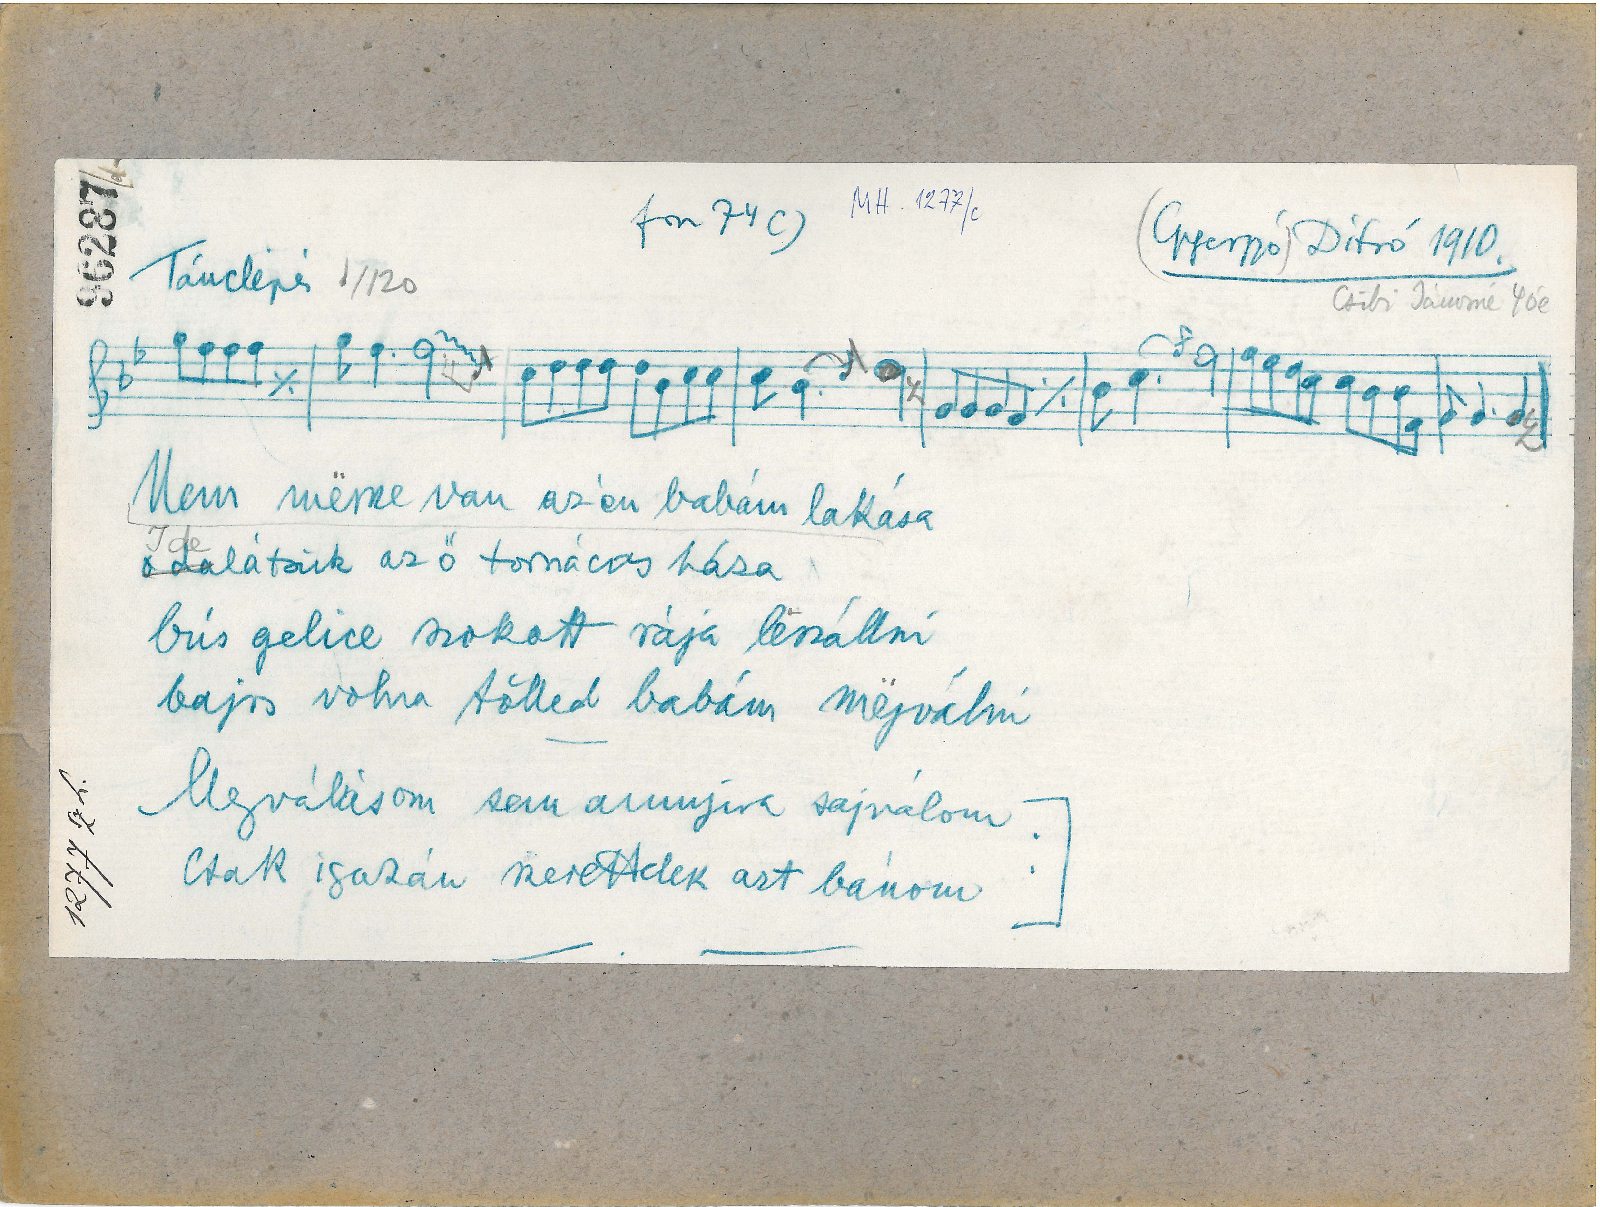 96287
fon 74 c)
MH. 1277/c
(Gyergyó) Ditró 1910.
Tánclépés 1/120
Csibi Jánosné 40é
Nem mësze van az én babám lakása
Ide
odalátszik az ő tornácos háza
bús gelice szokott rája lëszállni
bajos volna tőlled babám mëgválni
Megválásom sem annyira sajnálom
Csak igazán szerettelek azt bánom
1277